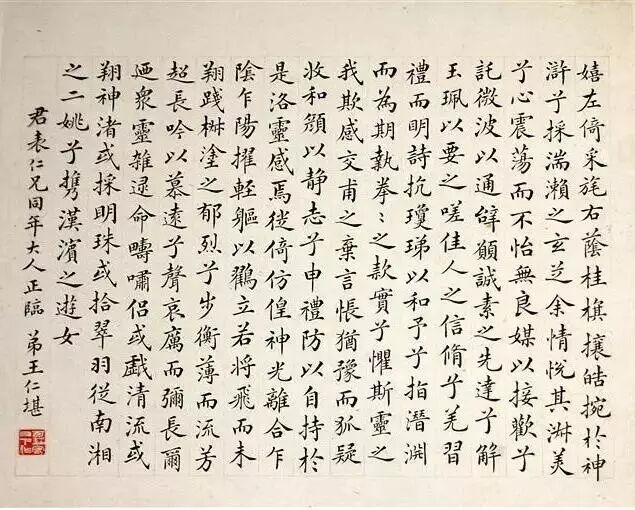 嬉左倚采旄右蔭桂旗攘皓捥於神
滸兮採湍瀨之玄芝余情悅其淋美
兮心震蕩而不怡無良媒以接歡兮
託微波以通辝願誠素之先達兮解
玉珮以要之嗟佳人之信脩兮羌習
禮而明詩抗瓊珶以和予兮指潛淵
而為期執拳〻之款實兮懼斯靈之
我欺感交甫之棄言悵猶豫而狐疑
收和顏以静志兮申禮防以自持於
是洛靈感焉徙倚仿偟神光離合乍
陰乍陽擢軽軀以鸖立若將飛而未
翔踐椒塗之郁烈兮步衡薄而流芳
超長吟以慕遠兮聲哀厲而彌長爾
迺衆靈雜遝命疇嘯侣或戱清流或
翔神渚或採明珠或拾翠羽從南湘
之二姚兮攜漢濱之遊女
君表仁兄同年大人正臨 弟王仁堪